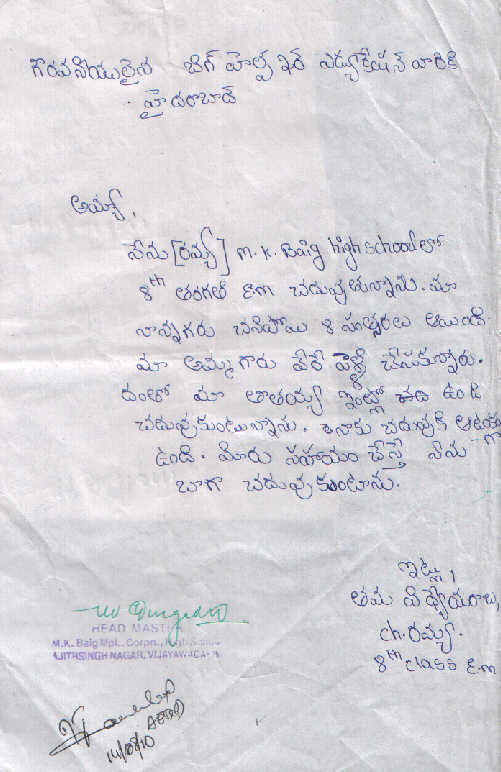 గౌరవనీయులైన బిగ్ హెల్ప్ ఫర్ ఎడ్యుకేషన్ వారికి
హైదరాబాద్
అయ్యా,
నేను [రమ్య] M.K. Baig high school లో
8th తరగతి E.m చదువుతున్నాను. మా
నాన్నగారు చనిపోయి 8 సంత్సరాలు అయింది
మా అమ్మగారు వేరే పెళ్ళి చేసుకున్నారు.
దంతో మా తాతయ్య ఇంట్లో ఉండి
చదువుకుంటున్నాను. నాకు చదువుకి ఆటంకం
ఉంది. మీరు సహాయం చేస్తే నేను
బాగా చదువుకుంటాను.
ఇట్లు,
తమ విధ్యేయురాలు,
ch. రమ్య.
8th class E.m
HEAD MAST
M.K. Baig Mpl., Corpn.,
AJITHSINGH NAGAR, VIJAYAWADA-